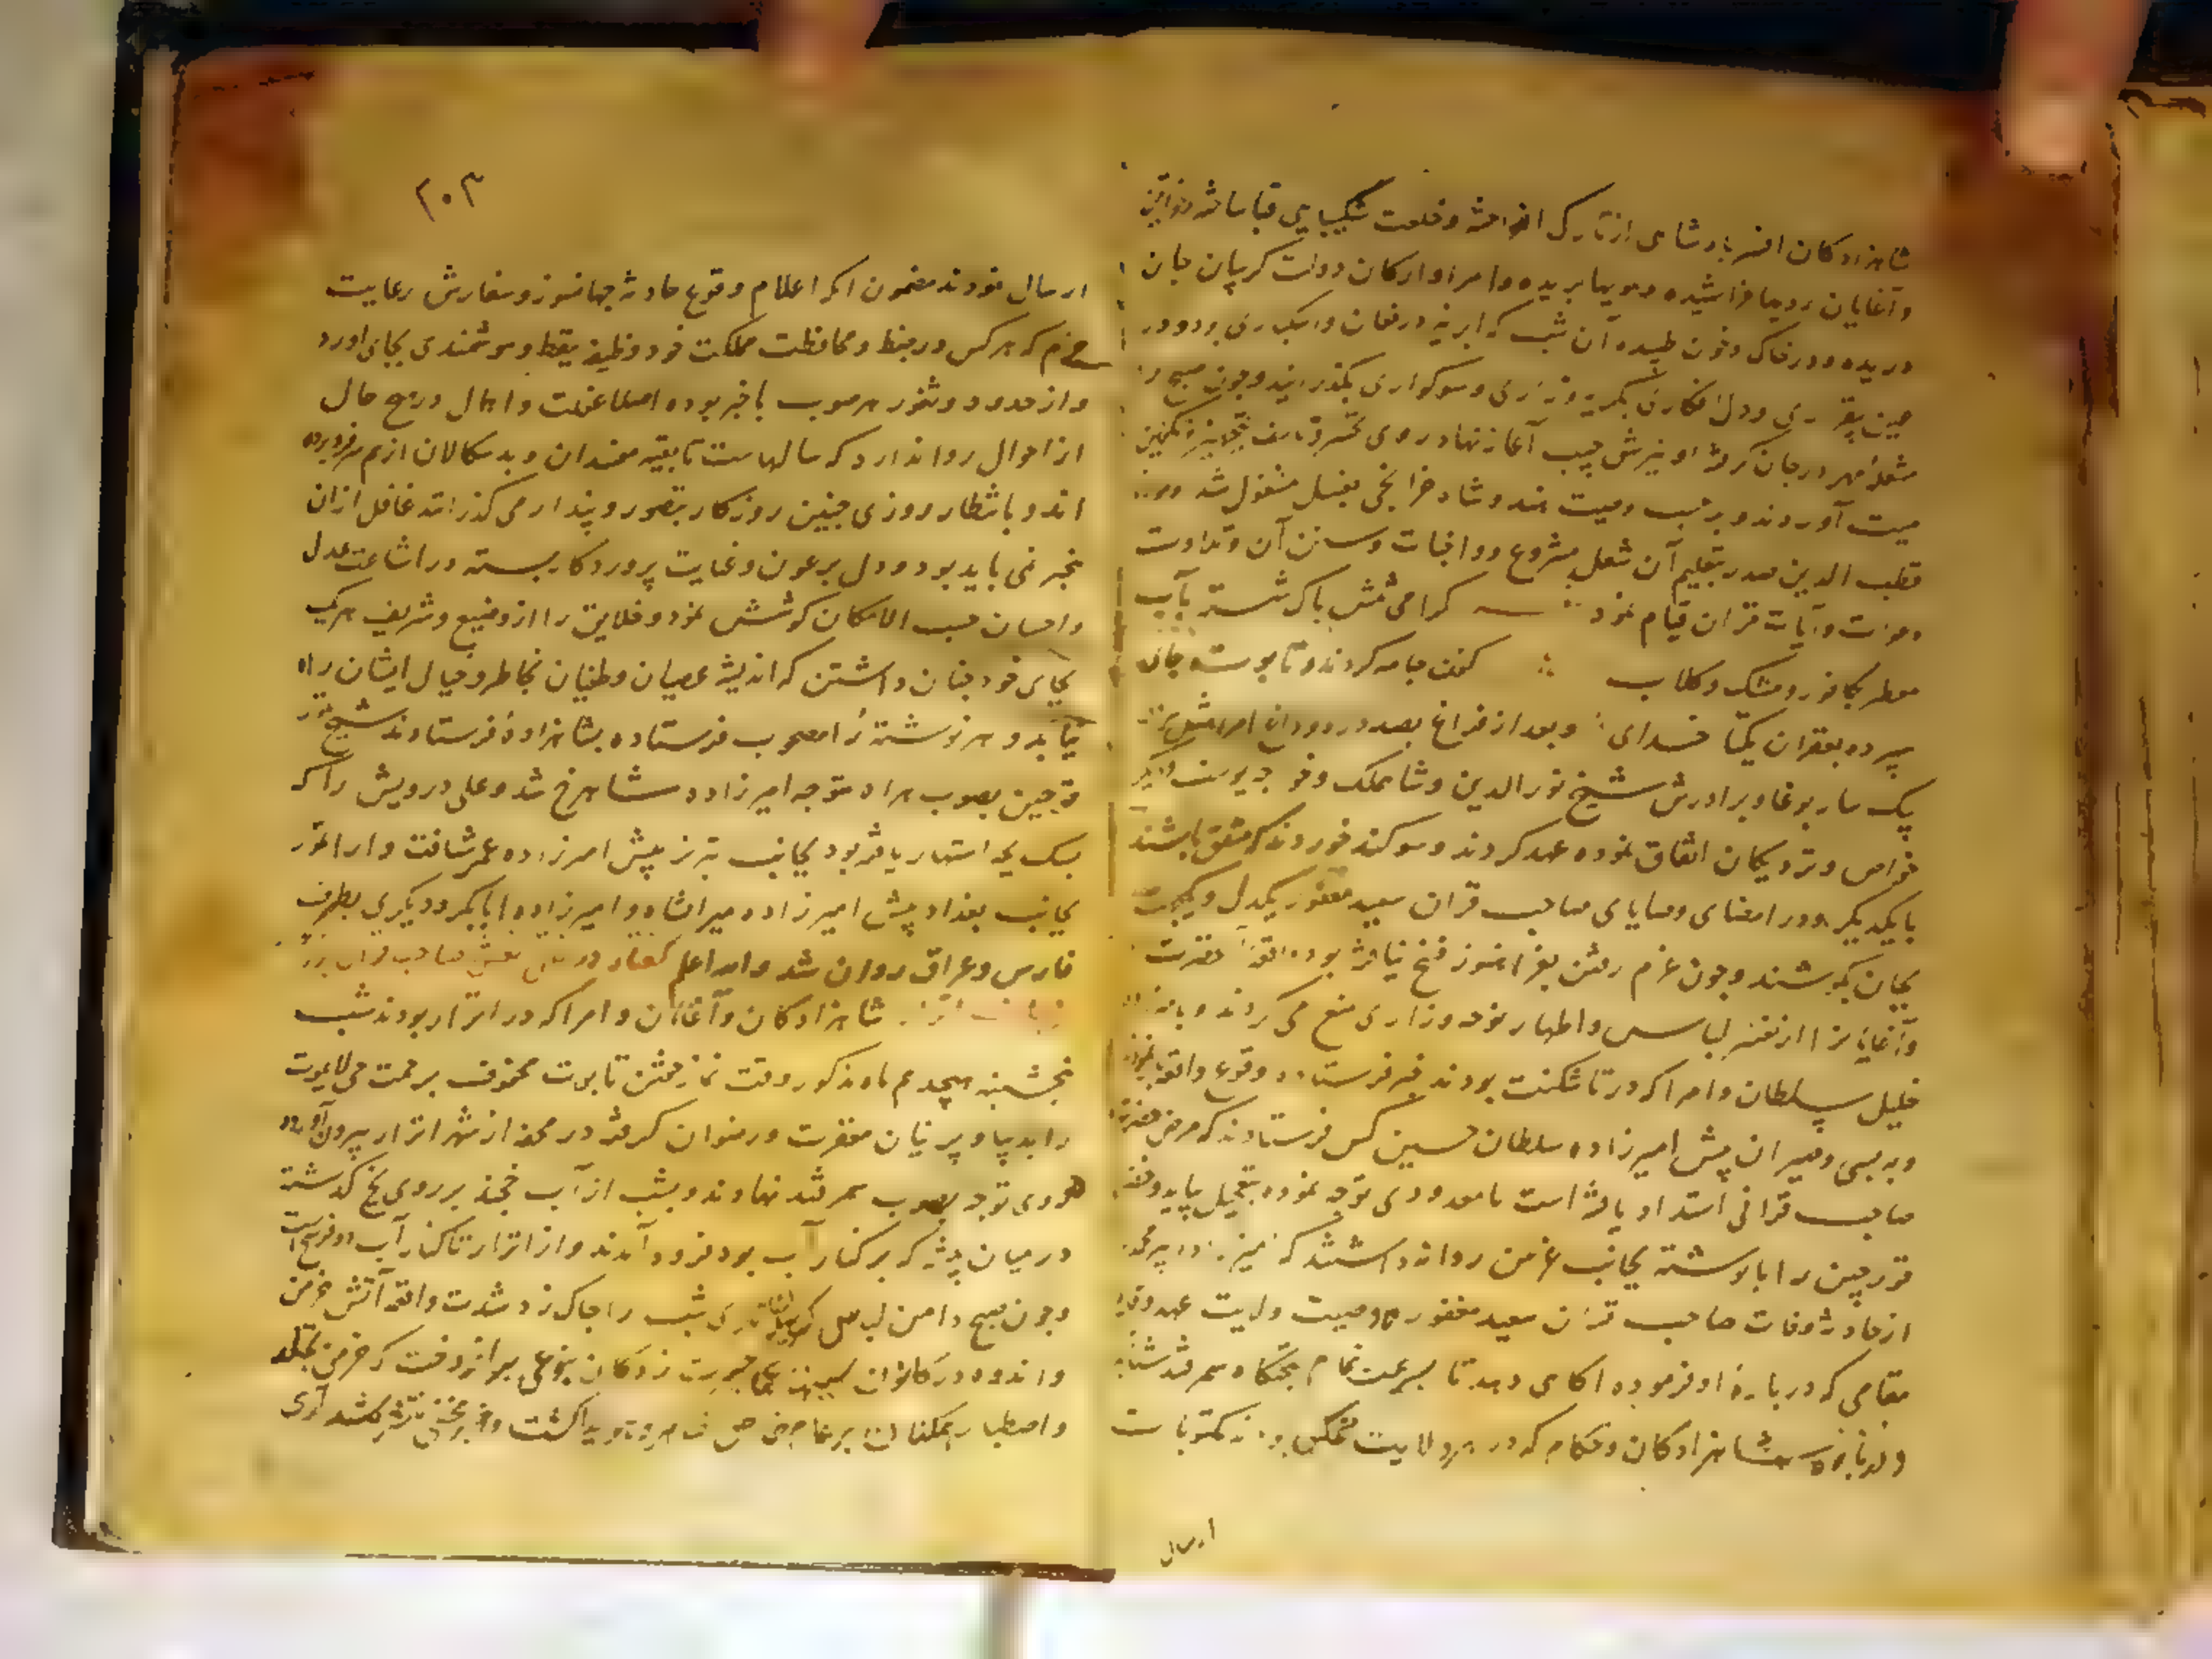 شاهزادکان افسر پادشاهی از تارک انداخته و خلعت شکیبایی قبا ساخته خواتین
و آغایان رویها خراشیده و مویها بریده و امرا و ارکان دولت کریبان جان
دریده و در خاک و خون طپیده آن شب که ابر نیز در فغان و اشکباری بود و در
عین بیقراری و دل افکاری بکریه و زاری و سوکواری بکذرانیدند و چون صبح را
مشعلهٔ مهر در جان کرفته آغاز نهاد روی بتجهیز و تکفین
میت آوردند و برحسب وصیت هندوشاه خزانجی بغسل مشغول شد و مولانا
قطب الدین صدر بتعلیم آن شغل مشروع و واجبات و سنن آن و تلاوت
دعوات و آیات قرآن قیام نمود کرامی تنش پاک شسته بآب
معطر بکافور و مشک و کلاب کفن جامه کردند و تابوت جای
سپرده بغفران یکتا خدای و بعد از فراغ بصد درد و داغ امرا مثل
بیک ساربوغا و برادرش شیخ نورالدین و شاهملک و خواجه یوسف و دیکر
خواص و نزدیکان اتفاق نموده عهد کردند و سوکند خوردند که متفق باشند
با یکدیکر و در امضای وصایای صاحب قران سعید مغفور یکدل و یکجهت
بجان بکوشند و چون عزم رفتن بغزا هنوز فسخ نیافته بود حضرات
و آغایانرا از تغییر لباس و اظهار نوحه و زاری منع می کردند و بامیرزاده
خلیل سلطان و امرا که در تاشکنت بودند خبر فرستادند وقوع واقعه
و به یسی و صبران پیش امیرزاده سلطان حسین کس فرستادند که مرض حضرت
صاحب قرانی اشتداد یافته است با معدودی توجه نموده بتعجیل بیاید و خضر
قورچین را با نوشته بجانب غزنین روانه داشتند که امیرزاده پیر محمد را
از حادثه وفات صاحب قران سعید مغفور و وصیت ولایت عهد و قایم
مقامی که در باره او فرموده آکاهی دهد تا بسرعت تمام بتختکاه سمرقند شتابد
و شاهزادکان و حکام که در هر ولایت متمکن بودند مکتوبات
ارسال
۲۰۳
ارسال نمودند مضمون آنکه اعلام وقوع حادثه جهانسوز و سفارش رعایت
حزم که هر کس در حفظ و محافظت مملکت خود وظیفه تیقظ و هوشمندی بجای آورد
و از حدود و ثغور هر صوب با خبر بوده اصلا غفلت و اهمال در هیچ حال
از احوال روا ندارد که سالهاست تا بقیه مفسدان و بدسکالان از بیم سر فرو برده
اند و بانتظار روزی چنین روزکار بتصور و پندار می کذرانند غافل از آن
بخبر نمی باید بود و دل بر عون و عنایت پروردکار بسته در اشاعت عدل
و احسان حسب الامکان کوشش نمود و خلایق را از وضیع و شریف هر یک
بجای خود چنان داشتن که اندیشه عصیان و طغیان بخاطر و خیال ایشان راه
نیابد و هر نوشته را مصحوب فرستاده بشاهزاده فرستادند شیخ تمور
قوچین بصوب هراه متوجه امیرزاده شاهرخ شد و علی درویش را که
بسک بچه اشتهار یافته بود بجانب تبریز پیش امیرزاده عمر شتافت و اراتمور
بجانب بغداد پیش امیرزاده میرانشاه و امیرزاده ابابکر و دیکری بطرف
فارس و عراق روان شد والله اعلم کفتار در نعش صاحب قران
شاهزادکان و آغایان و امرا که در اترار بودند شب
پنجشنبه هیجدهم ماه مذکور وقت نماز خفتن تابوت محفوف برحمت حی لایموت
را بدیبا و پرنیان مغفرت و رضوان کرفته در محفه از شهر اترار بیرون آوردند
و روی توجه بصوب سمرقند نهادند و بشب از آب خجند بر روی یخ کذشته
در میان بیشه که بر کنار آب بود فرود آمدند و از اترار تا کنار آب دو فرسخ است
و چون صبح دامن لباس شب را چاک زد شدت واقعه آتش حزن
و اندوه در کانون سینها بنوعی برافروخت که خرمن تجلد
و اصطبار همکنان